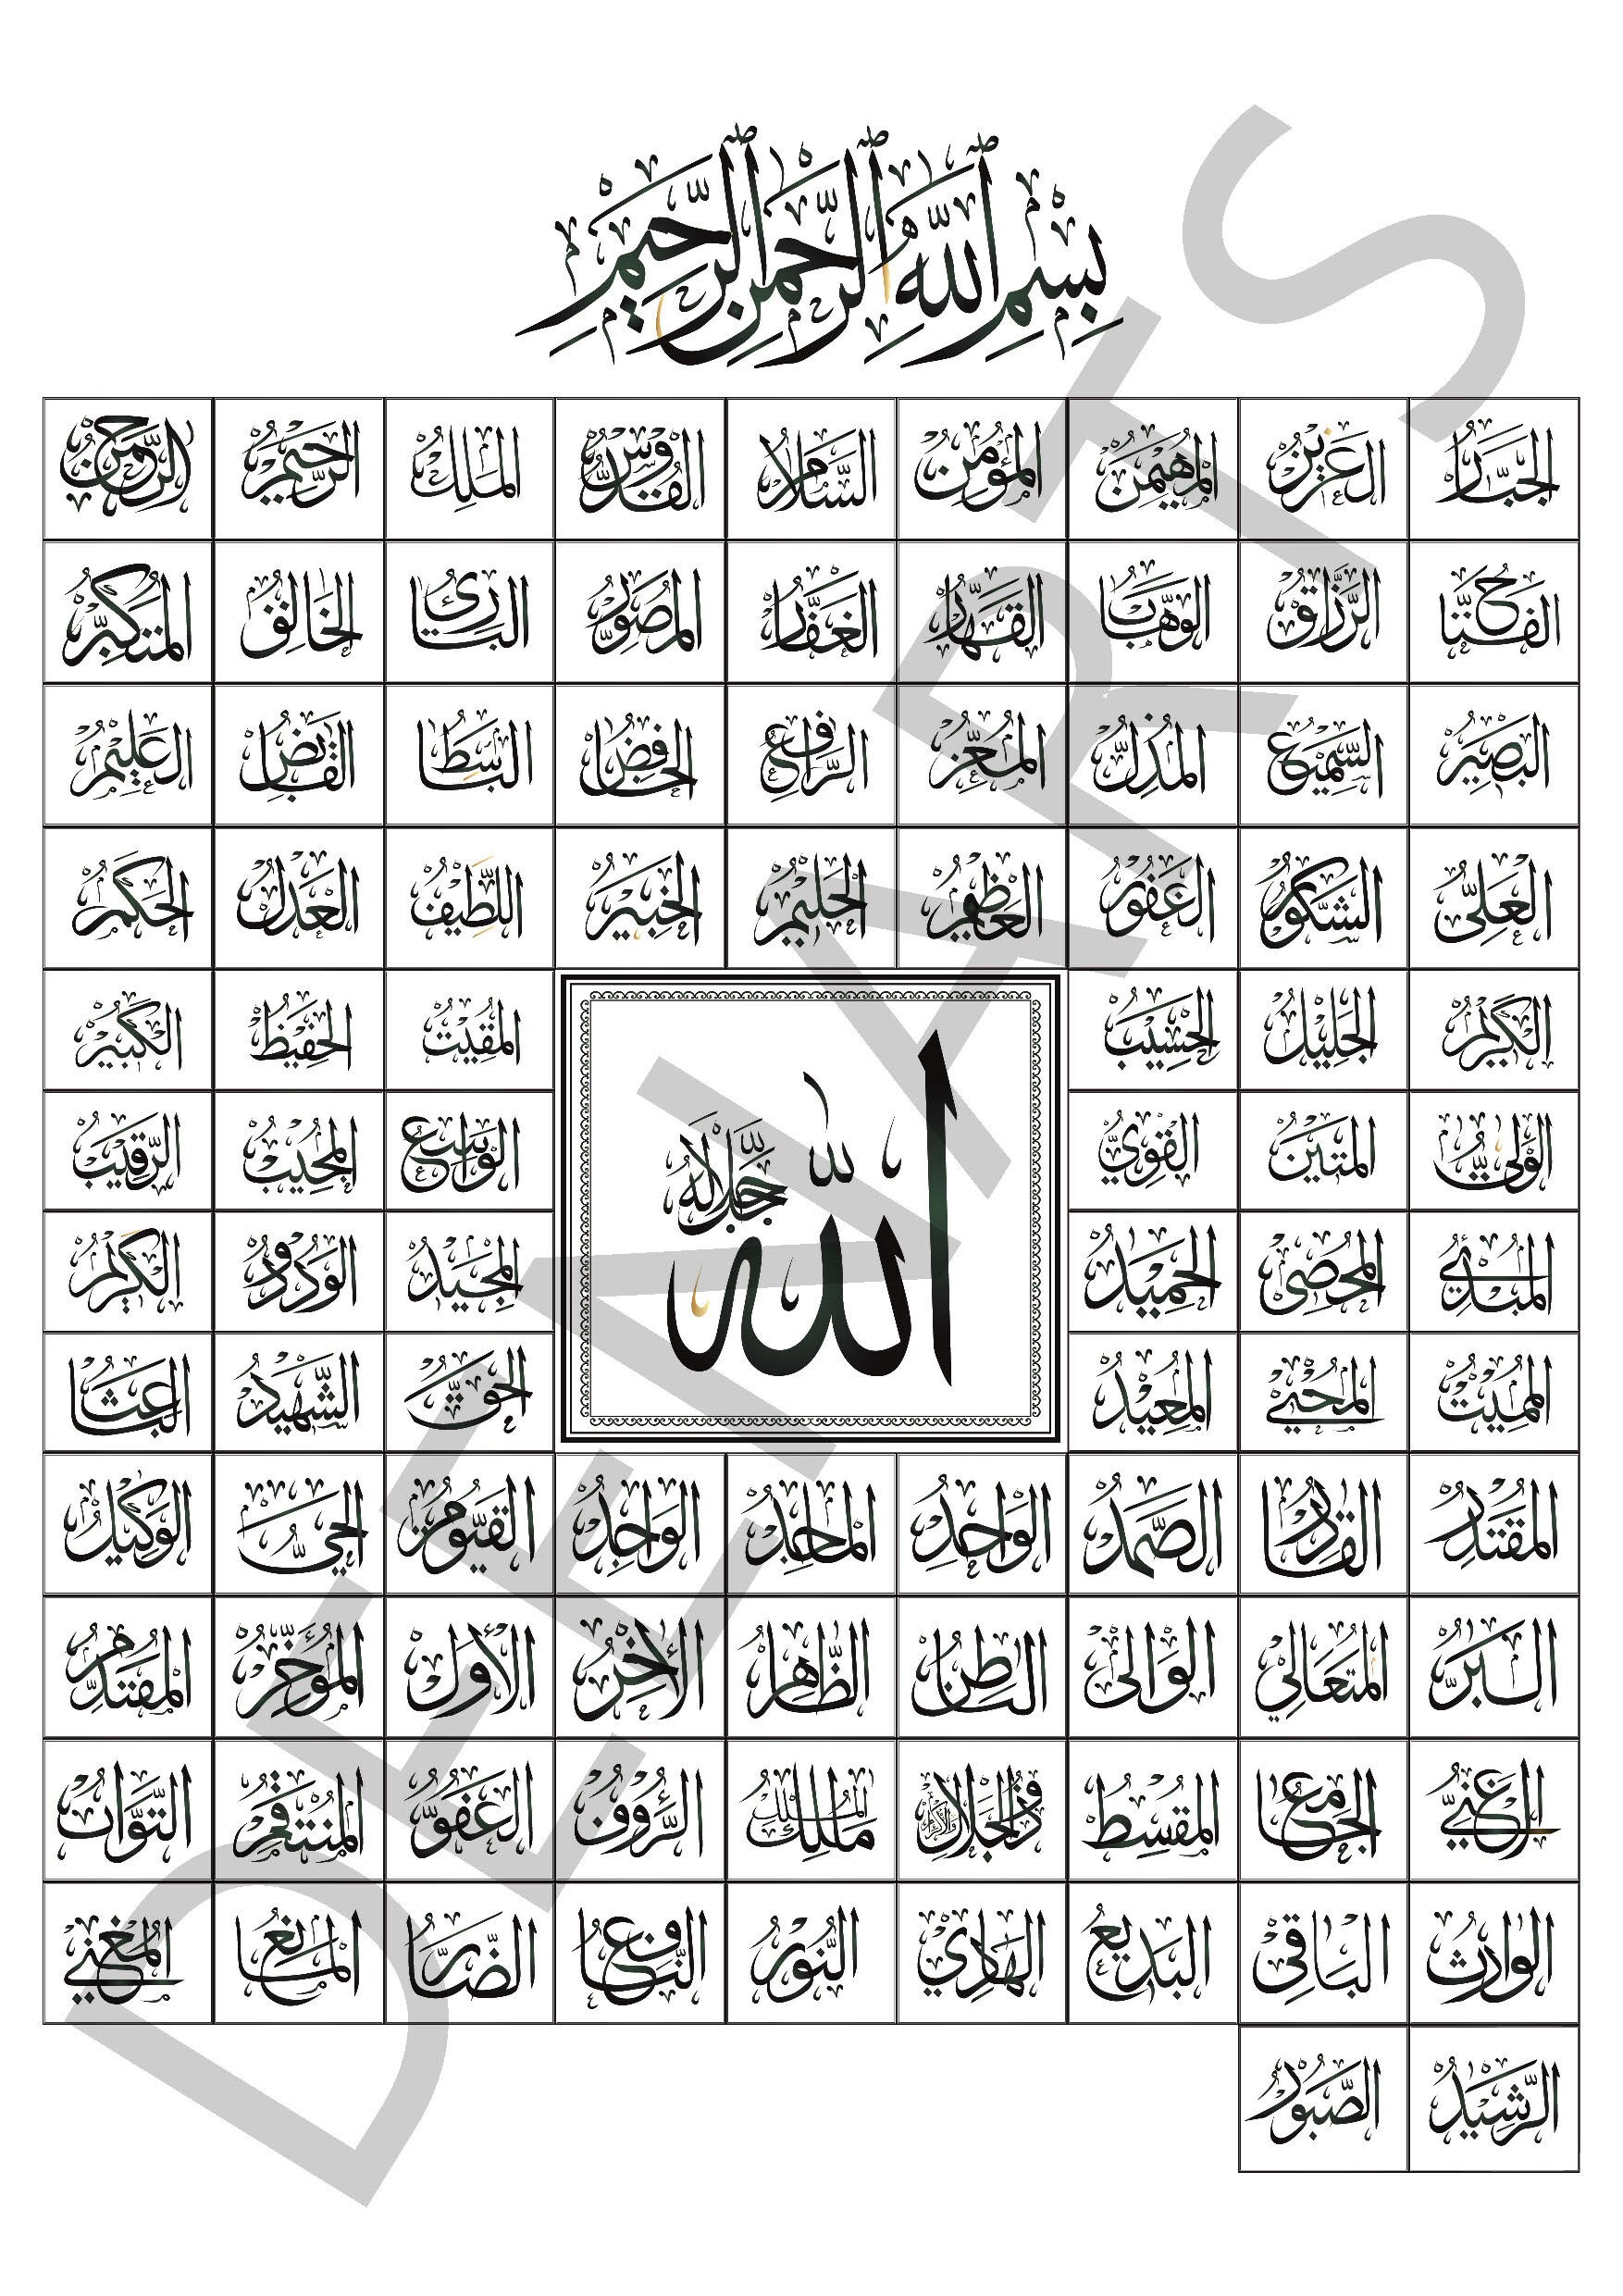 بِسْمِ ٱللَّهِ ٱلرَّحْمٰنِ ٱلرَّحِيمِ
الرَّحْمٰنُ الرَّحِيمُ المَلِكُ القُدُّوسُ السَّلَامُ المُؤْمِنُ المُهَيْمِنُ العَزِيزُ الجَبَّارُ
المُتَكَبِّرُ الخَالِقُ البَارِئُ المُصَوِّرُ الغَفَّارُ القَهَّارُ الوَهَّابُ الرَّزَّاقُ الفَتَّاحُ
العَلِيمُ القَابِضُ البَاسِطُ الخَافِضُ الرَّافِعُ المُعِزُّ المُذِلُّ السَّمِيعُ البَصِيرُ
الحَكَمُ العَدْلُ اللَّطِيفُ الخَبِيرُ الحَلِيمُ العَظِيمُ الغَفُورُ الشَّكُورُ العَلِيُّ
الكَبِيرُ الحَفِيظُ المُقِيتُ الحَسِيبُ الجَلِيلُ الكَرِيمُ
الله جل جلاله
الرَّقِيبُ المُجِيبُ الوَاسِعُ القَوِيُّ المَتِينُ الوَلِيُّ
الكَرِيمُ الوَدُودُ المَجِيدُ الحَمِيدُ المُحْصِي المُبْدِئُ
البَاعِثُ الشَّهِيدُ الحَقُّ المُعِيدُ المُحْيِي المُمِيتُ
الوَكِيلُ الحَيُّ القَيُّومُ الوَاجِدُ المَاجِدُ الوَاحِدُ الصَّمَدُ القَادِرُ المُقْتَدِرُ
المُقَدِّمُ المُؤَخِّرُ الأَوَّلُ الآخِرُ الظَّاهِرُ البَاطِنُ الوَالِي المُتَعَالِي البَرُّ
التَّوَّابُ المُنْتَقِمُ العَفُوُّ الرَّؤُوفُ مَالِكُ المُلْكِ ذُو الجَلَالِ وَالإِكْرَامِ المُقْسِطُ الجَامِعُ الغَنِيُّ
المُغْنِي المَانِعُ الضَّارُّ النَّافِعُ النُّورُ الهَادِي البَدِيعُ البَاقِي الوَارِثُ
الرَّشِيدُ الصَّبُورُ
DEENARTS